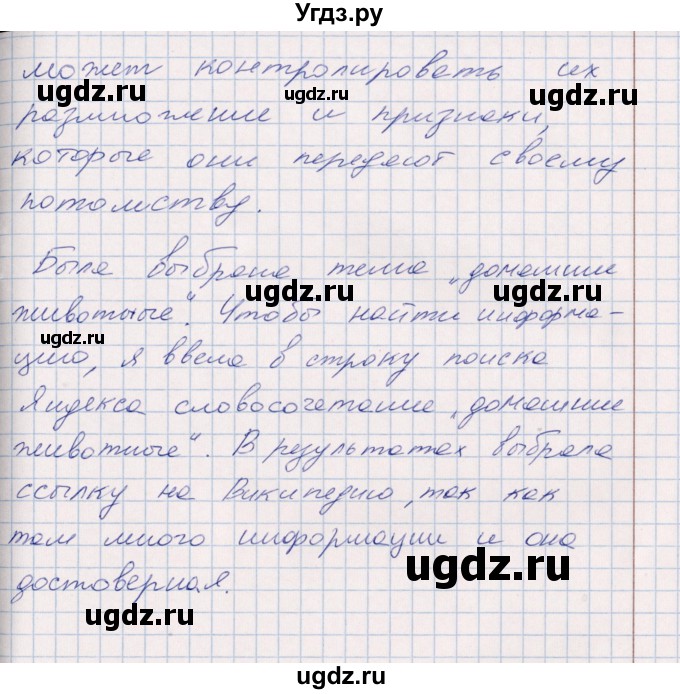 Угдз.ру
может контролировать их
ugdz.ru ugdz.ru ugdz.ru
размножение и признаки,
которые они передают своему
потомству.
Была выбрана тема „домашние
ugdz.ru ugdz.ru
животные“. Чтобы найти информа-
ugdz.ru
цию, я ввела в строку поиска
Яндекса словосочетание „домашние
животные“. В результатах выбрала
ugdz.ru ugdz.ru
ссылку на Википедию, так как
там много информации и она
ugdz.ru
достоверная.
ugdz.ru ugdz.ru
ugdz.ru